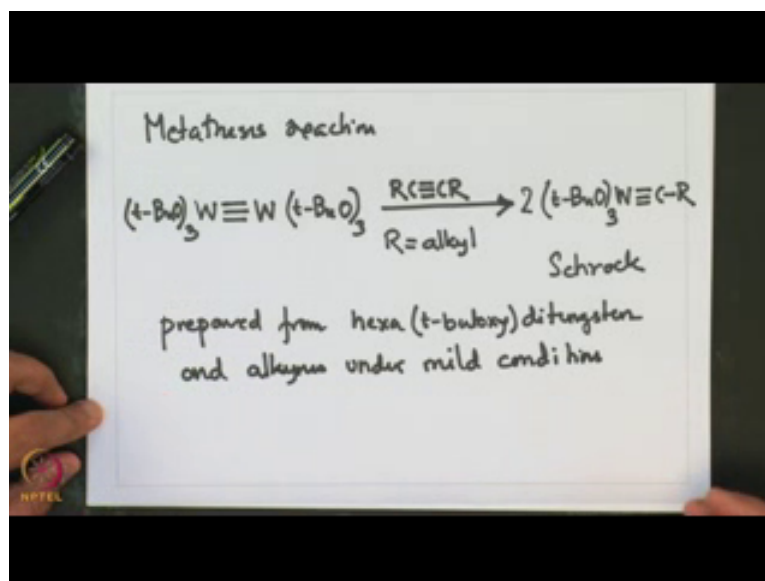 Metathesis reaction
(t-BuO)₃W≡W(t-BuO)₃ RC≡CR 2 (t-BuO)₃W≡C-R
R=alkyl
Schrock
prepared from hexa(t-butoxy)ditungsten
and alkynes under mild conditions
NPTEL